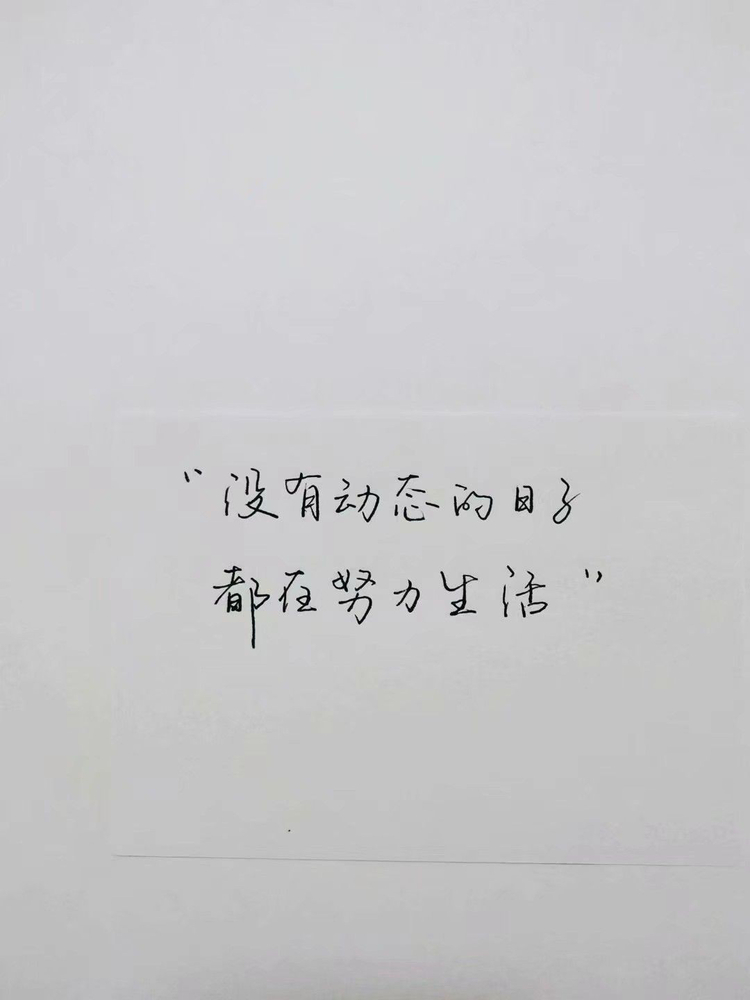 “没有动态的日子
都在努力生活”